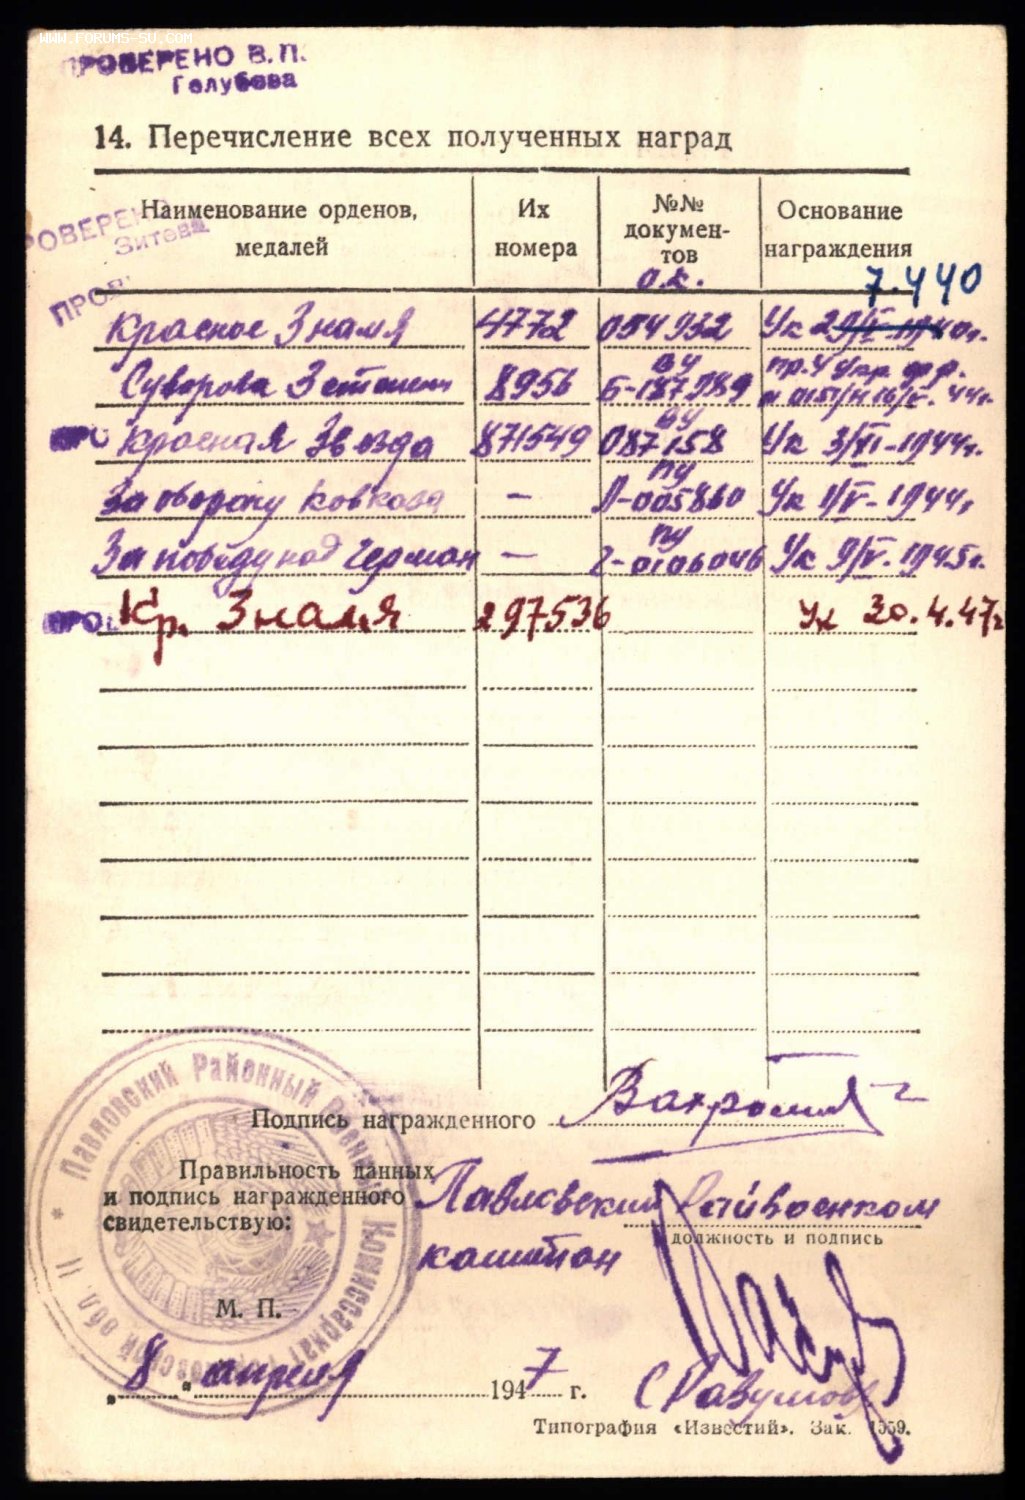 WWW.FORUMS-SU.COM
ПРОВЕРЕНО В.П.
Голубева
14. Перечисление всех полученных наград
Наименование орденов, медалей
Их номера
№№ документов
Основание награждения
РОВЕРЕНО
Зитева
ПРОВ
о.к.
7.4 40
Красное Знамя 4772 054932 Ук 29/IV-1940г.
Суворова 3 степени 8956 ВУ Б-187989 пр. 4 Укр. фр.
Красная Звезда 871549 ВУ 087158 Ук 3/VI-1944г.
За оборону Кавказа — ПУ Л-005860 Ук 1/V-1944г
За победу над Герман — ПУ Г-0106046 Ук 9/V.1945г.
ПРО
ПРОВ
Кр. Знамя 297536 Ук 30.4.47г
Подпись награжденного Вахромеев
Правильность данных
и подпись награжденного
свидетельствую:
Павловский Райвоенком
должность и подпись
капитан
М. П.
„8“ апреля 1947 г.
(Разумов)
Павловский Районный Военный Комиссариат Горьковской обл. 11
Типография «Известий». Зак. 1559.